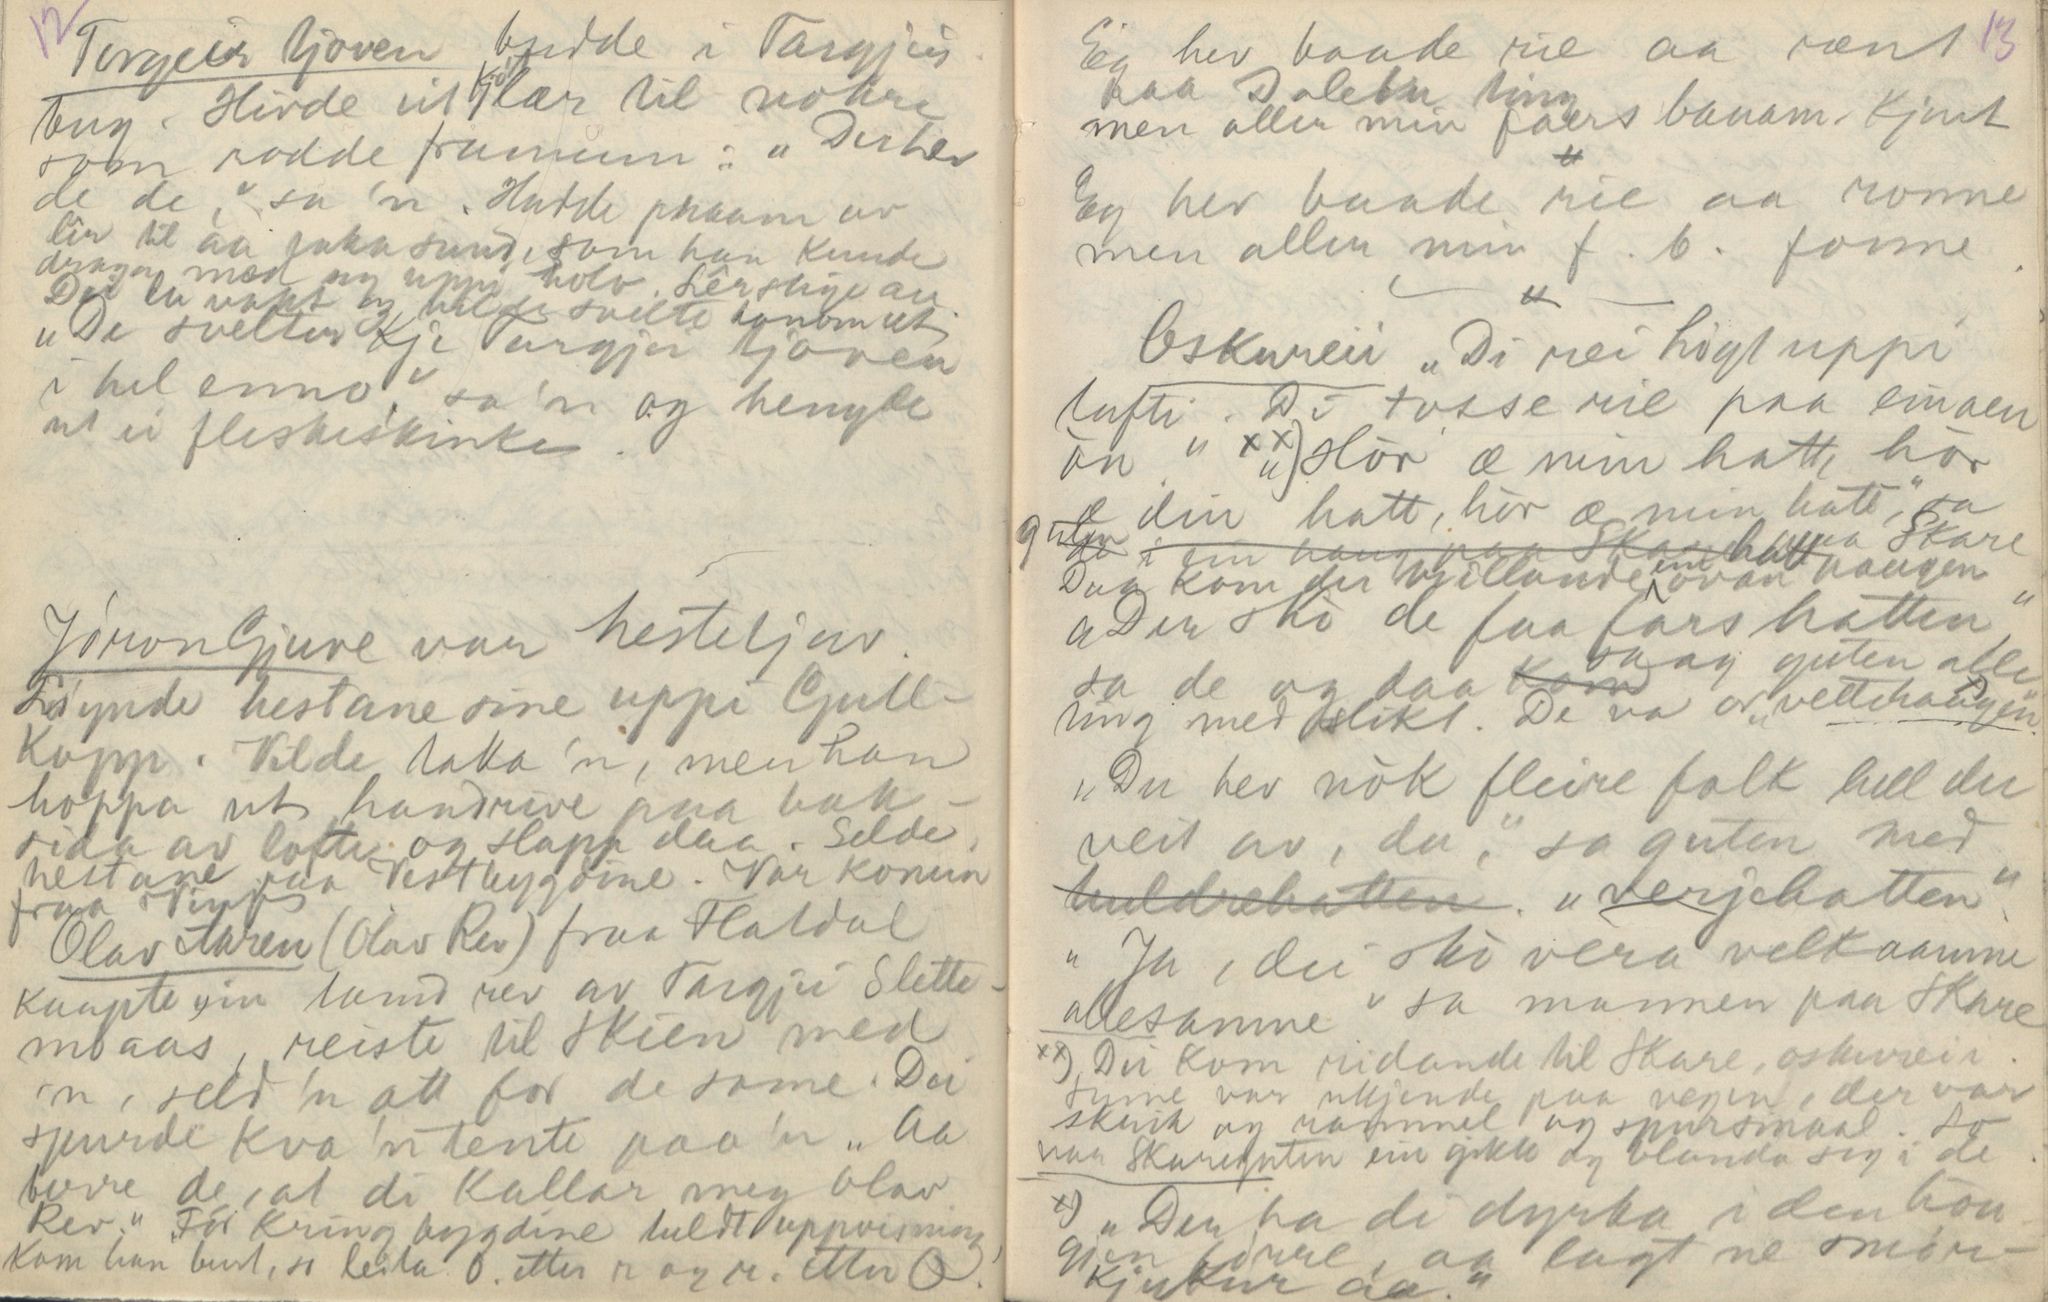 12
Torgeir tjoven budde i Targjus
bug. Hivde ut kjöt lær til nokre
som rodde framum: "Der hev
de de," sa 'n. Hadde praam av
lêr til aa paka sund, som han kunde
draga med seg uppi holo. Lêrstige au
Dei la vakt og vilde svelte honom ut.
"De svelter kje Targjei tjoven
i hel enno," sa 'n og hengde
ut ei fleskeskinke.
Jóron Gjuve var hestetjuv.
Löynde hestane sine uppi Gull-
kopp. Vilde taka 'n, men han
hoppa ut handrive paa bak-
sida av lofte og slapp daa. Selde
hestane paa Vestbygdine. Var komen
fraa
Olav Aaren (Olav Rev) fraa Flatdal
kaupte ein tamd rev av Targjei Slette-
mbaas, reiste til Skien med
'n, seld 'n att for de same. Dei
spurde kva 'n tente paa 'n "Aa
berre de, at di kallar meg Olav
Rev." För kring bygdine heldt uppvisning,
kom han burt, so leita O. etter r og r. etter O.
13
Eg hev baade rie aa rent
paa Dalebu ting
men aller min faers banam. kjent
"
Eg hev baade rie aa ronne
men aller min f. b. fonne.
"
Oskureii "Di rei högt uppi
lufti. Di tosse rie paa einaen
ön." xx) "Hör æ min hatt, hör
æ din hatt, hör æ min hatt," sa
guten i ein haug paa Skare paa Skare
Daa kom der trillande ein hatt ovan haugen
"Der sko de faa fars hatten,"
sa de og daa kom saag guten alle
ting med slikt. De va or "vettehaugen".
"Du hev nôk fleire folk hell du
veit av, du," sa guten med
huldrehatten. "verjehatten".
"Ja, dei sko vera velkaamne
allesamne" sa mannen paa Skare
xx) Dei kom ridande til Skare, oskureii.
Sume var ukjende paa vegen, der var
skrik og rammel og spursmaal. So
var Skareguten ein gikk og blanda seg i de
x) "Der ha di dyrka i den hou
gjen förre, aa lagt ne smör-
kjukur aa."